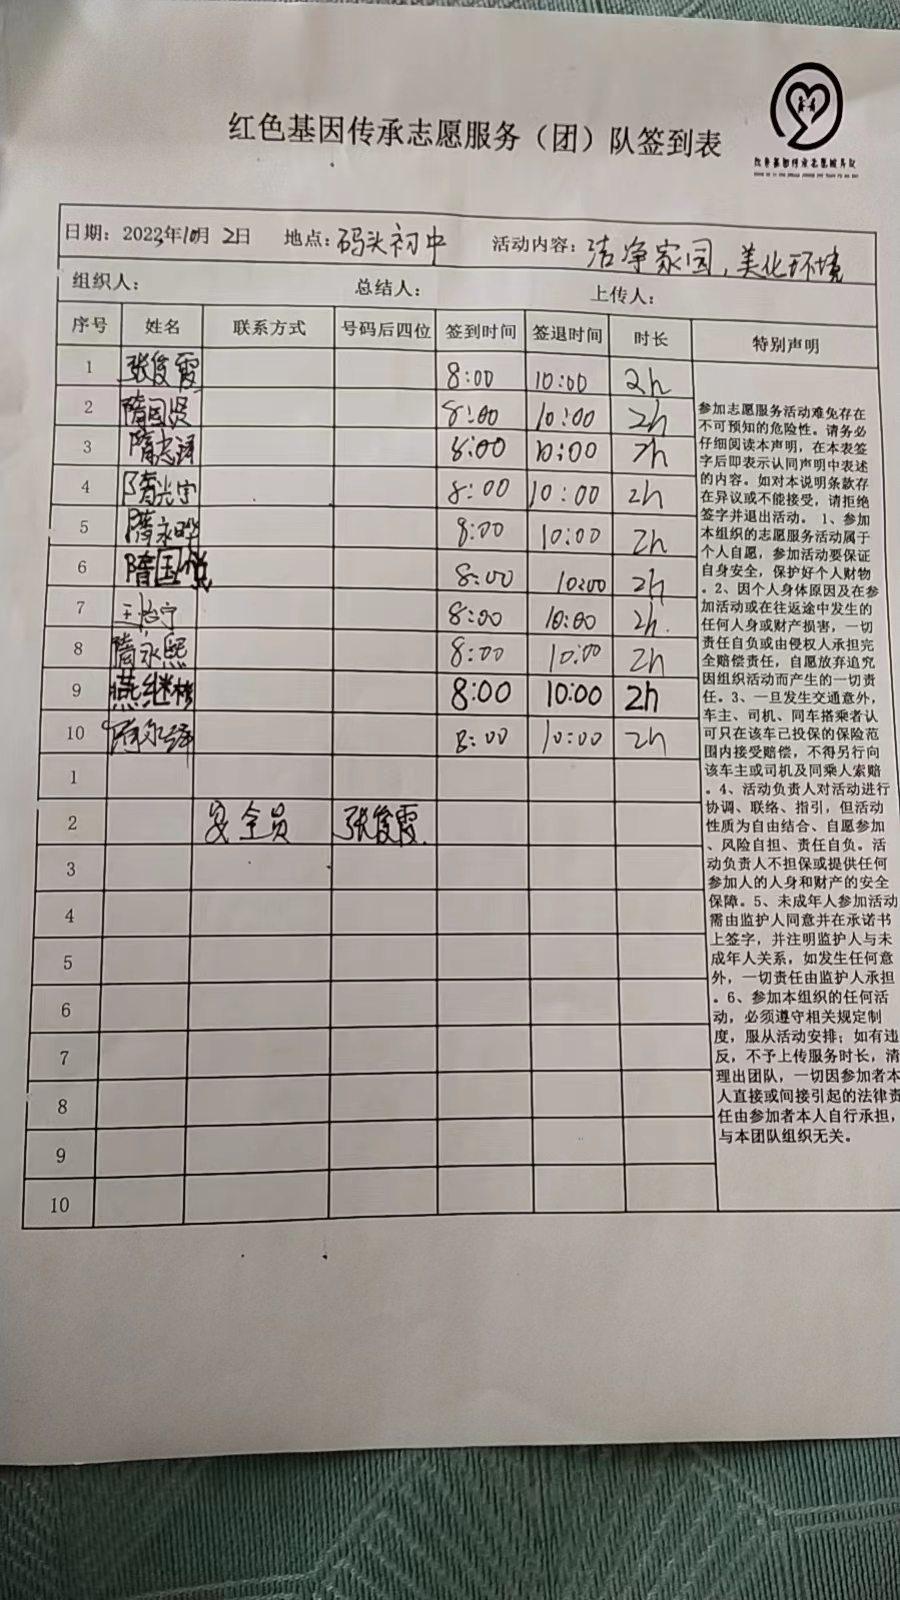 红色基因传承志愿服务（团）队签到表
红色基因传承志愿服务队
日期：2023年10月2日 地点：码头初中 活动内容：洁净家园，美化环境
组织人： 总结人： 上传人：
序号 姓名 联系方式 号码后四位 签到时间 签退时间 时长 特别声明
1 张俊霞 8:00 10:00 2h
2 隋国贤 8:00 10:00 2h
3 隋志译 8:00 10:00 2h
4 隋光宇 8:00 10:00 2h
5 隋永晔 8:00 10:00 2h
6 隋国悦 8:00 10:00 2h
7 王怡宁 8:00 10:00 2h.
8 隋永熙 8:00 10:00 2h
9 燕继楼 8:00 10:00 2h
10 8:00 10:00 2h
1
2 安全员 张俊霞.
3
4
5
6
7
8
9
10
参加志愿服务活动难免存在
不可预知的危险性。请务必
仔细阅读本声明，在本表签
字后即表示认同声明中表述
的内容。如对本说明条款存
在异议或不能接受，请拒绝
签字并退出活动。 1、参加
本组织的志愿服务活动属于
个人自愿，参加活动要保证
自身安全，保护好个人财物
。2、因个人身体原因及在参
加活动或在往返途中发生的
任何人身或财产损害，一切
责任自负或由侵权人承担完
全赔偿责任，自愿放弃追究
因组织活动而产生的一切责
任。3、一旦发生交通意外，
车主、司机、同车搭乘者认
可只在该车已投保的保险范
围内接受赔偿，不得另行向
该车主或司机及同乘人索赔
。4、活动负责人对活动进行
协调、联络、指引，但活动
性质为自由结合、自愿参加
、风险自担、责任自负。活
动负责人不担保或提供任何
参加人的人身和财产的安全
保障。5、未成年人参加活动
需由监护人同意并在承诺书
上签字，并注明监护人与未
成年人关系，如发生任何意
外，一切责任由监护人承担
。6、参加本组织的任何活
动，必须遵守相关规定制
度，服从活动安排；如有违
反，不予上传服务时长，清
理出团队，一切因参加者本
人直接或间接引起的法律责
任由参加者本人自行承担，
与本团队组织无关。